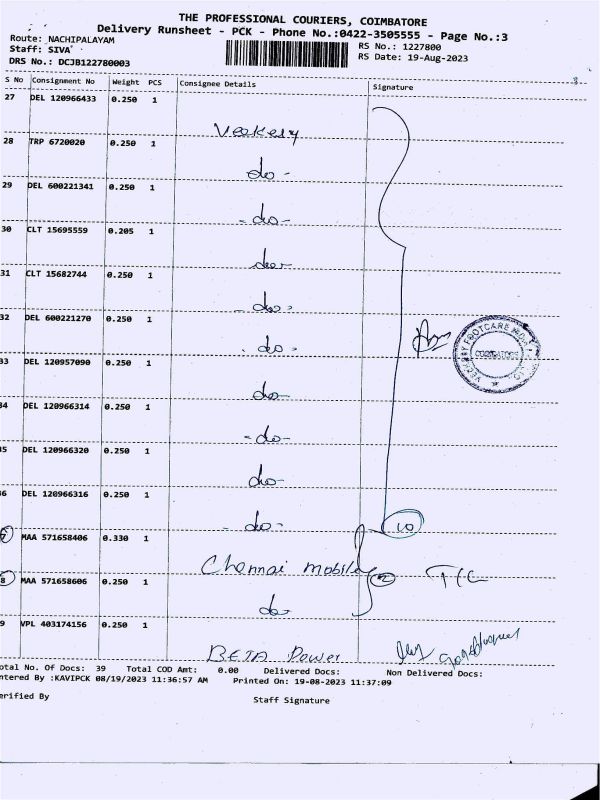 THE PROFESSIONAL COURIERS, COIMBATORE
Delivery Runsheet - PCK - Phone No.:0422-3505555 - Page No.:3
Route: NACHIPALAYAM
RS No.: 1227800
Staff: SIVA
RS Date: 19-Aug-2023
DRS No.: DCJB122780003
S No Consignment No Weight PCS Consignee Details Signature
27 DEL 120966433 0.250 1
28 TRP 6720020 0.250 1 do -
29 DEL 600221341 0.250 1 - do -
30 CLT 15695559 0.205 1 do -
31 CLT 15682744 0.250 1 - do -
32 DEL 600221270 0.250 1 - do -
33 DEL 120957090 0.250 1 do -
34 DEL 120966314 0.250 1 - do -
35 DEL 120966320 0.250 1 do -
36 DEL 120966316 0.250 1 - do - 10
7 MAA 571658406 0.330 1 Chennai mobile
8 MAA 571658606 0.250 1 do - 2
9 VPL 403174156 0.250 1 BETA Power
FOOTCARE
COIMBATORE
otal No. Of Docs: 39 Total COD Amt: 0.00 Delivered Docs: Non Delivered Docs:
ntered By :KAVIPCK 08/19/2023 11:36:57 AM Printed On: 19-08-2023 11:37:09
erified By Staff Signature